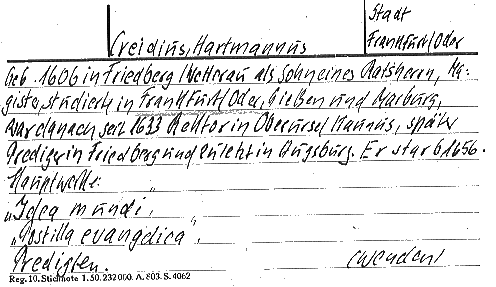 Creidius, Hartmannus
Stadt
Frankfurt/Oder
Geb. 1606 in Friedberg/Wetterau als Sohn eines Ratsherrn, Ma-
gister, studierte in Frankfurt/Oder, Gießen und Marburg,
war danach seit 1633 Rektor in Oberursel/Taunus, später
Prediger in Friedberg und zuletzt in Augsburg. Er starb 1656.
Hauptwerke:
„Idea mundi,
„Postilla evangelica,
Predigten.
Reg. 10. Stichnote 1. 50. 232000. A. 803. S. 4062